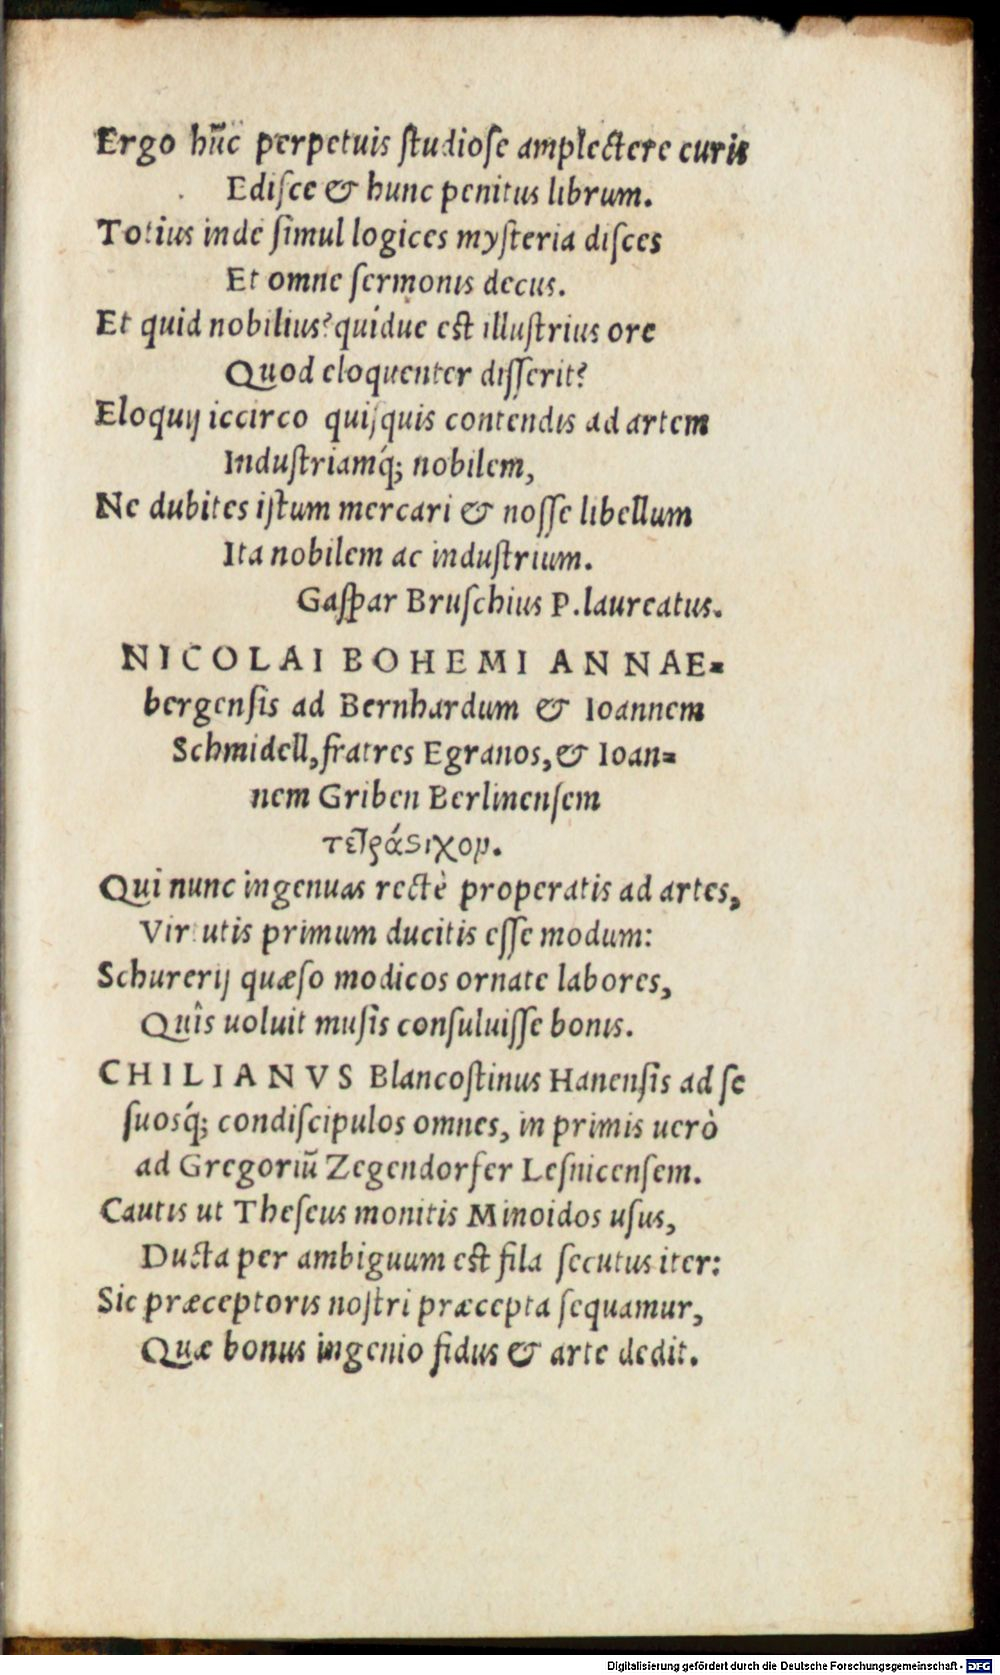 Ergo hūc perpetuis ſtudioſe amplectere curis
Ediſce & hunc penitus librum.
Totius inde ſimul logices myſteria diſces
Et omne ſermonis decus.
Et quid nobilius? quidue eſt illuſtrius ore
Quod eloquenter diſſerit?
Eloquij iccirco quiſquis contendis ad artem
Induſtriamq́; nobilem,
Ne dubites iſtum mercari & noſſe libellum
Ita nobilem ac induſtrium.
Gaſpar Bruſchius P. laureatus.
NICOLAI BOHEMI ANNAE=
bergenſis ad Bernhardum & Ioannem
Schmidell, fratres Egranos, & Ioan=
nem Griben Berlinenſem
τετράϛιχον.
Qui nunc ingenuas rectè properatis ad artes,
Virtutis primum ducitis eſſe modum:
Schurerij quæſo modicos ornate labores,
Quîs uoluit muſis conſuluiſſe bonis.
CHILIANVS Blancoſtinus Hanenſis ad ſe
ſuosq́; condiſcipulos omnes, in primis uerò
ad Gregoriū Zegendorfer Leſnicenſem.
Cautis ut Theſeus monitis Minoidos uſus,
Ducta per ambiguum eſt fila ſecutus iter:
Sic præceptoris noſtri præcepta ſequamur,
Quæ bonus ingenio fidus & arte dedit.
Digitalisierung gefördert durch die Deutsche Forschungsgemeinschaft - DFG